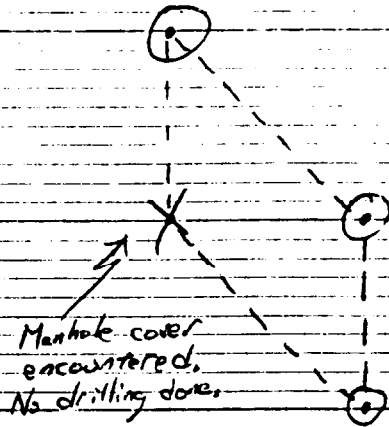 Manhole cover
encountered.
No drilling done.